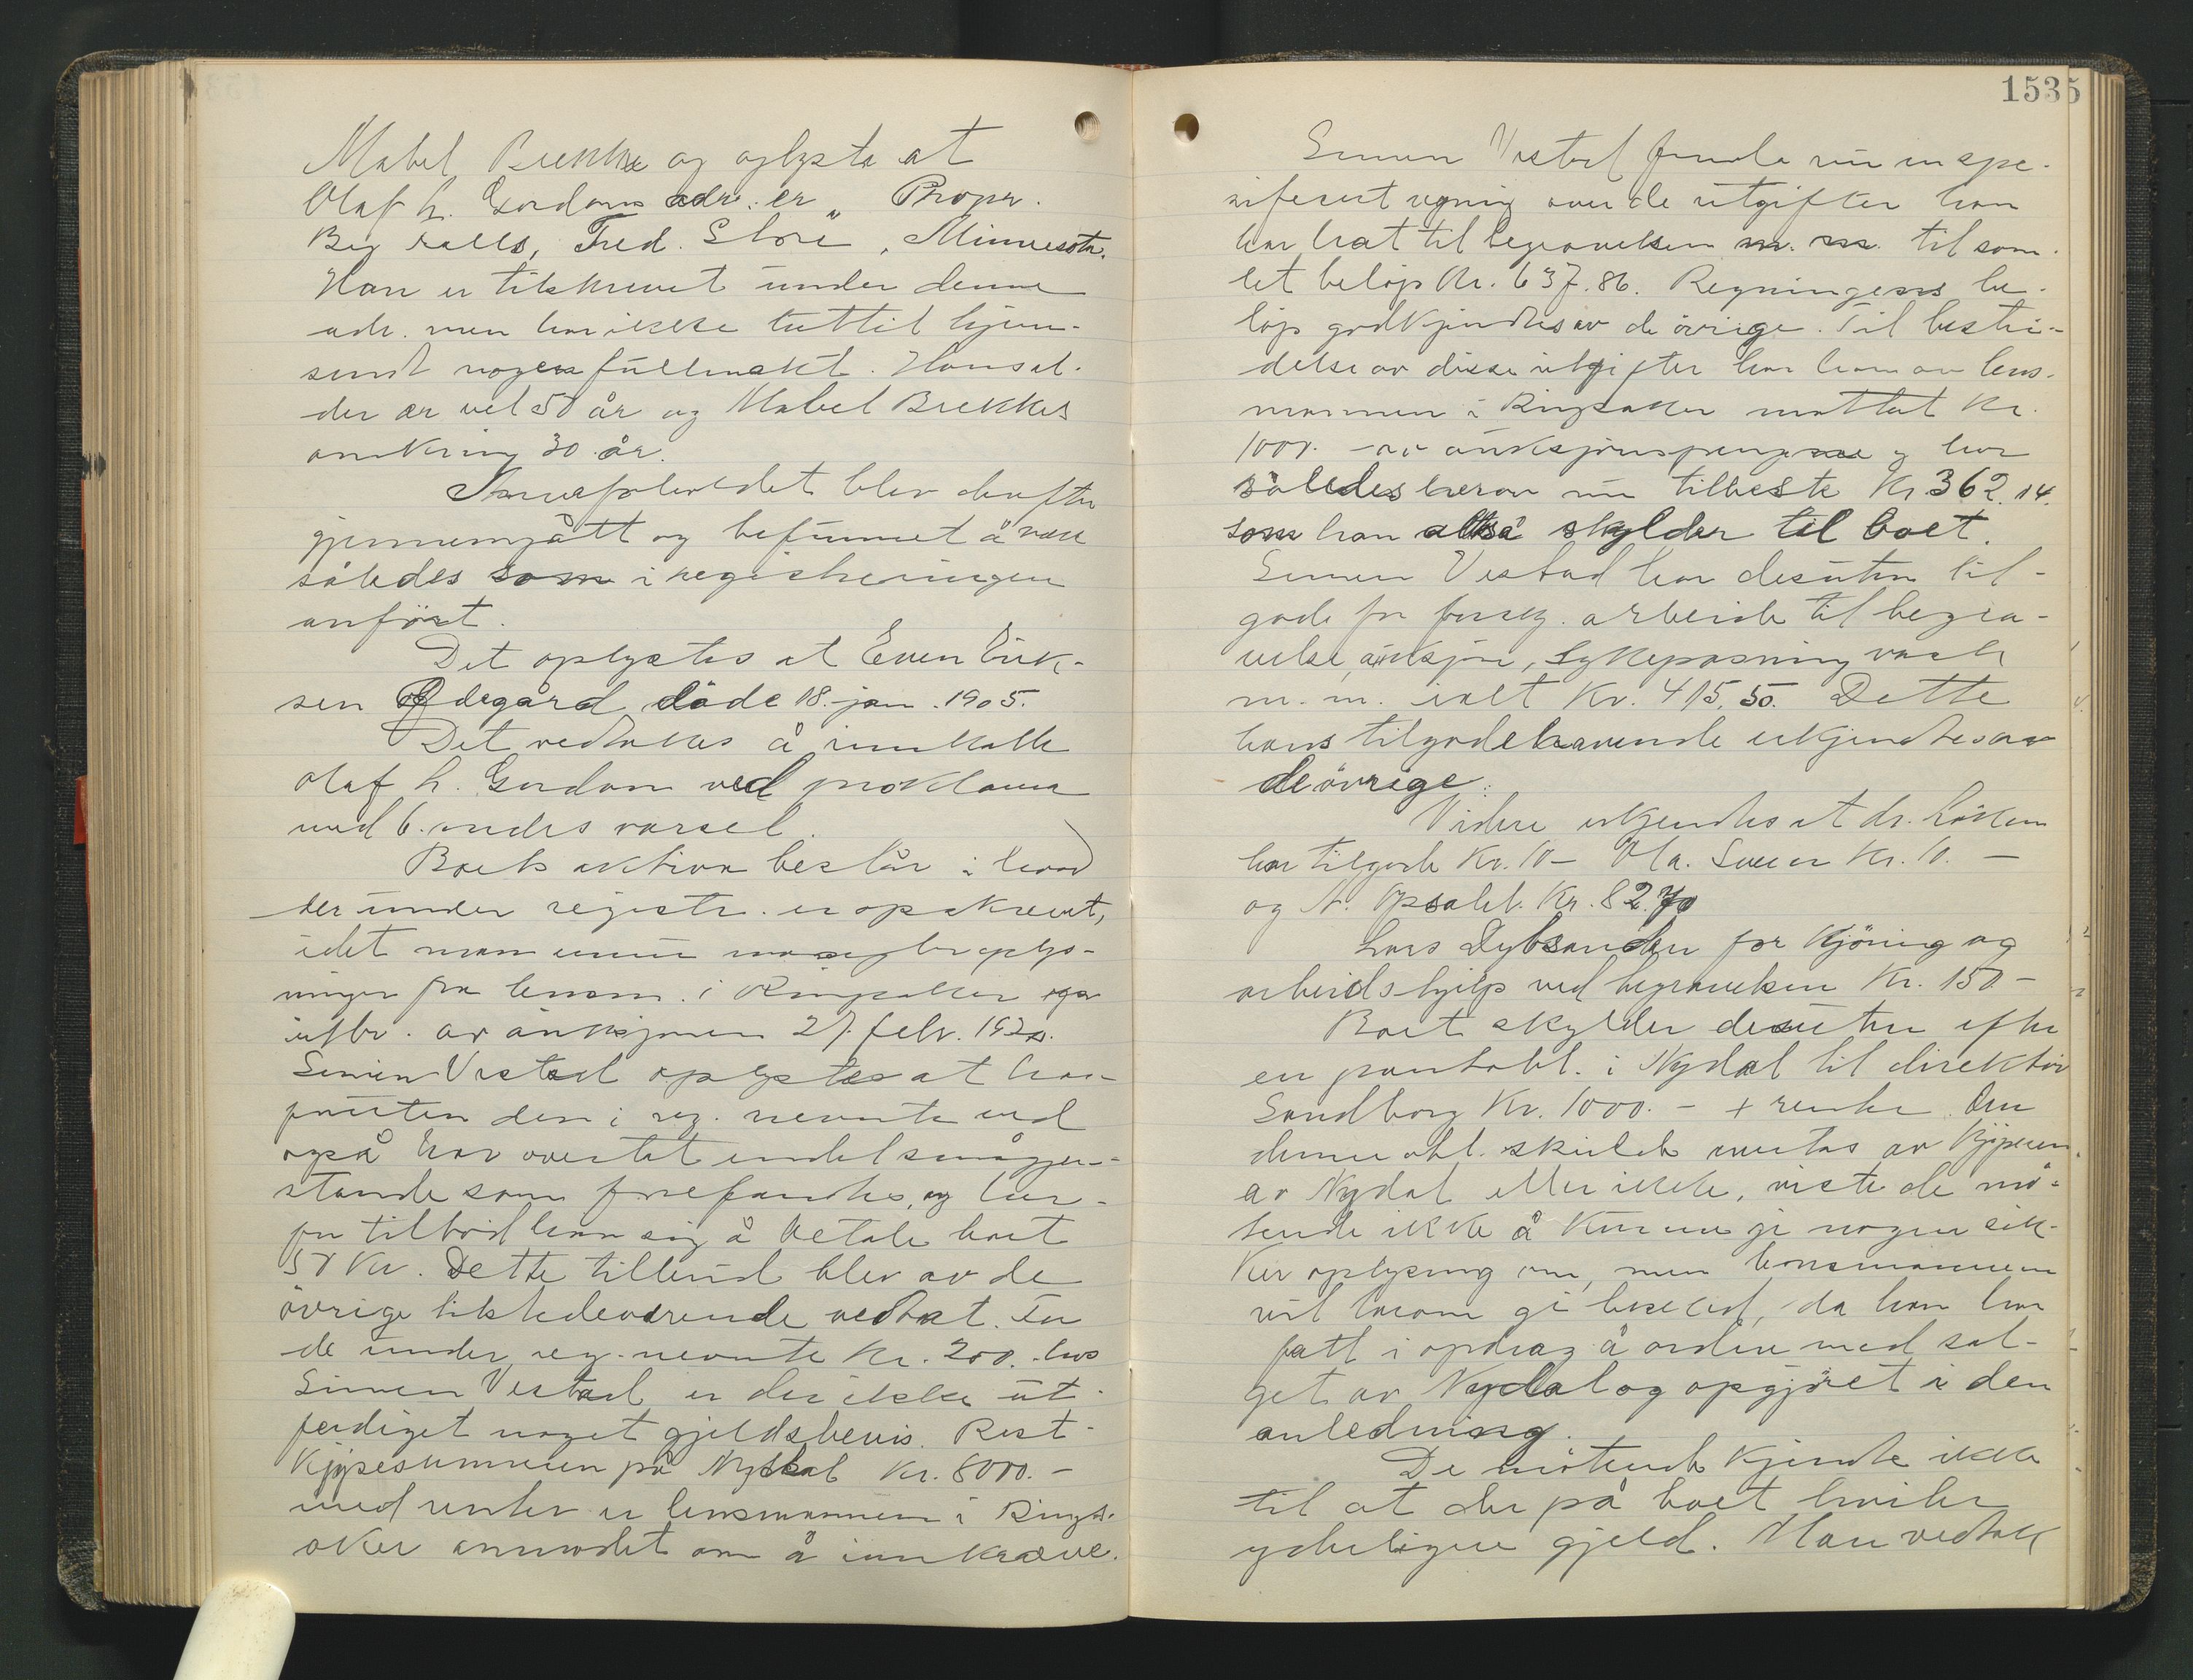 Mabel Brekke og oplyste at
Olaf L. Gordons adr. er „Propr.
Big Falls, Fred. Store", Minnesota.
Han er tilskrevet under denne
adr. men har ikke tattil hjem-
sendt nogen fullmakt. Hans al-
der er vel 50 år og Mabel Brekkes
omkring 30 år.
Arveforholdet blev derefter
gjennemgått og befunnet å være
således som i registreringen
anført.
Det oplystes at Even Erik-
sen Ødegård døde 18. jan. 1905.
Det vedtokes å innkalle
Olaf L. Gordon ved proklama
med 6. mndrs varsel.
Boets aktiva består i hvad
der under registr. er opskrevet,
idet man ennu mangler oplys-
ninger fra lensm. i Ringsaker
utbr. av auksjonen 27. febr. 1920.
Simen Vestad oplystes at han
foruten den i reg. nevnte ved
også har overtatt endel smågjen-
stande som forefandtes, og her-
for tilbød han sig å betale boet
50 Kr. Dette tilbud blev av de
øvrige tilstedeværende vedtat. For
de under reg. nevnte Kr. 200. hos
Simen Vestad er der ikke ut-
ferdiget noget gjeldsbevis. Rest-
kjøpesummen på Nydal Kr. 8000.-
med renter er lensmannen i Rings-
aker anmodet om å innkræve.
1535
Simen Vestad fremla nu en spe-
sifisert regning over de utgifter han
har hat til begravelsen m. m. til sam-
let beløp Kr. 637.86. Regningens be-
løp godkjendtes av de øvrige. Til bestri-
delse av disse utgifter har han av lens-
mannen i Ringsaker mottat Kr.
1000.- av auksjonspengene og har
således herav nu tilbeste Kr 362.14.
som han altså skylder til boet.
Simen Vestad har desuten til-
gode for forskj. arbeide til begra-
velse, auksjon, sykepasning vask
m. m. ialt Kr. 415,50. Dette
hans tilgodehavende erkjendtes av
de øvrige.
Videre erkjendtes at dr. Løken
har tilgode Kr. 10- Ola. Kr. 10.-
og N. Opsahl. Kr. 82.70
Lars Dybsanden for kjøring og
arbeidshjelp ved begravelsen Kr. 150-
Boet skylder desuten efter
en pantobl. i Nydal til direktør
Sandborg Kr. 1000.- + renter. Om
denne obl. skulde overtas av kjøperen
av Nydal eller ikke, viste de mø-
tende ikke å kunne gi nogen sik-
ker oplysning om, men lensmannen
vil herom gi beskjed, da han har
fått i opdrag å ordne med sal-
get av Nydal og opgjøret i den
anledning.
De møtende kjendte ikke
til at der på boet hviler
yderligere gjeld. Man vedtok